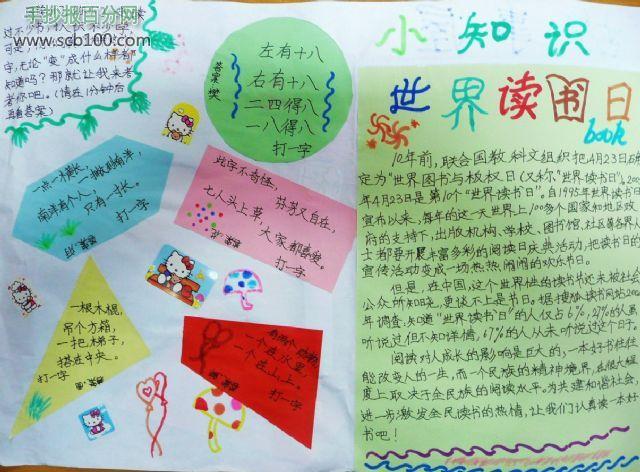 手抄报百分网
www.scb100.com
字,无论“变”成什么样者
知道吗?那就让我来考
考你吧。(请在1分钟后
再看答案)
左有十八
右有十八
二四得八
一八得八
打一字
答案:樊
一点一横长,
一撇到南洋,
南洋有个人,
只有一寸长。
打一字
此字不奇怪,
七人头上草,
大家都喜爱。
打一字
一根木棍,
吊个方箱,
一把梯子,
搭在中央。
打一字
有两个动物,
一个在水里,
一个在山上。
打一字
小知识
世界读书日
book
10年前,联合国教科文组织把4月23日确
定为“世界图书与版权日(又称“世界读书日”。2
年4月23日是第10个“世界读书日”。自1995年世界读书日
宣布以来,每年的这一天世界上100多个国家和地区政
府的支持下,出版机构、学校、图书馆、社区等各界人
士都要开展丰富多彩的阅读日庆典活动,把读书日的
宣传活动变成一场热热闹闹的欢乐节日。
但是,在中国,这个世界性的读书节还未被社会
公众所知晓,更谈不上是节日。据搜狐读书网站200
年调查,知道“世界读书日”的人仅占6%,27%的人虽
听说过但不知详情,67%的人从未听说过这个日子。
阅读对人成长的影响是巨大的,一本好书往往
能改变人的一生,而一个民族的精神境界,在很大程
度上取决于全民族的阅读水平。为共建和谐社会,
进一步激发全民读书的热情,让我们认真读一本好
书吧!